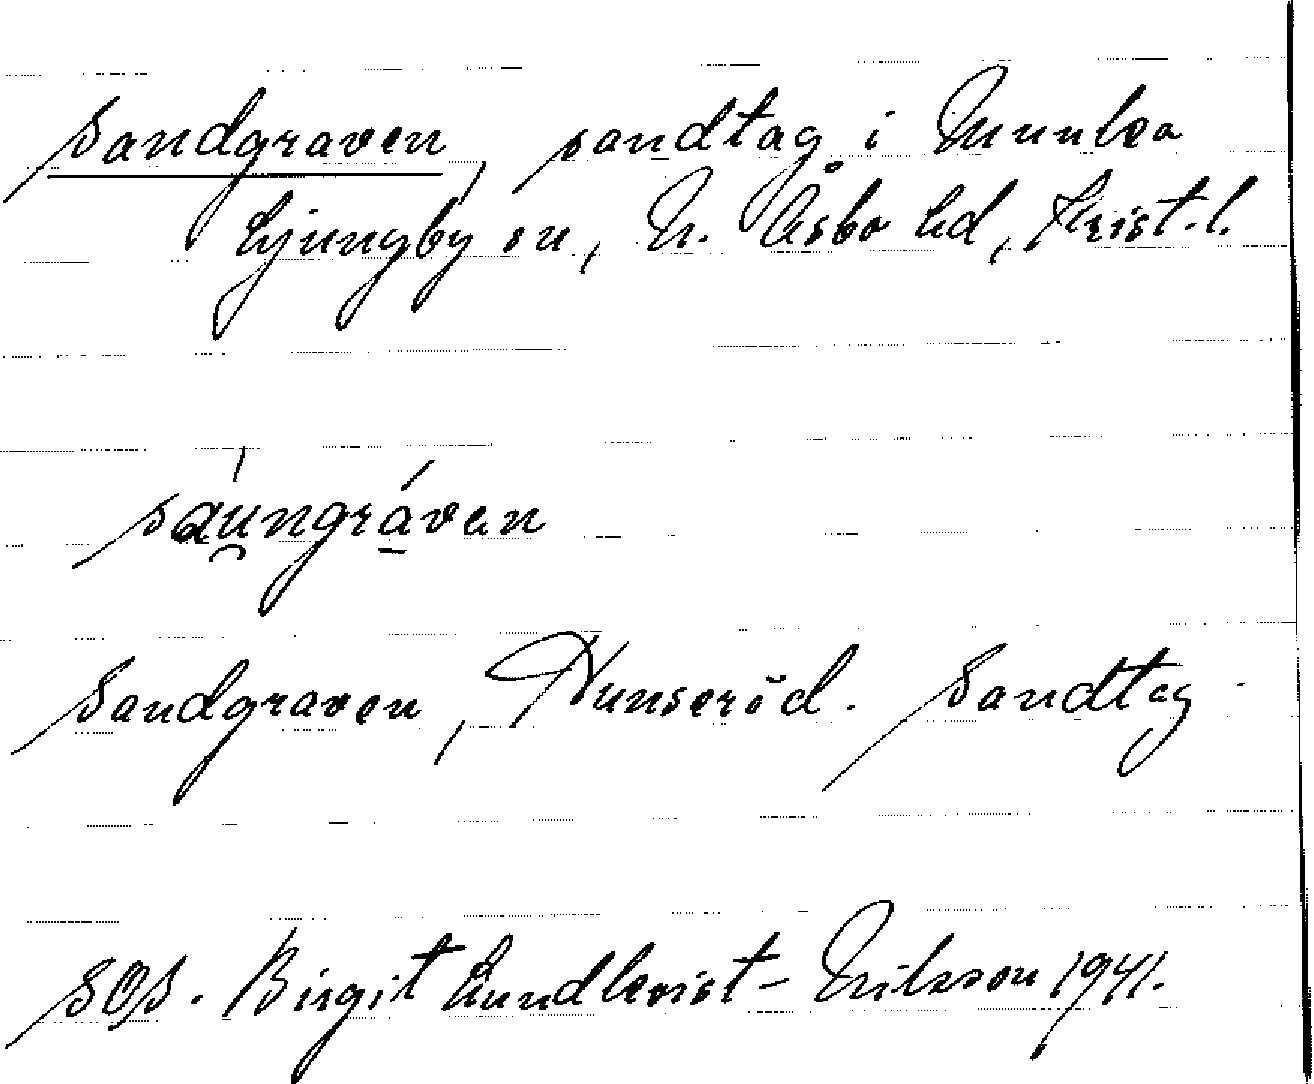 Sandgraven, sandtag i Munka
Ljungby sn, N. Åsbo hd, Krist. l.
sáu̯ngrávən
Sandgraven, Hunseröd. Sandtag.
SOS. Birgit Lundkvist-Nilsson 1941.